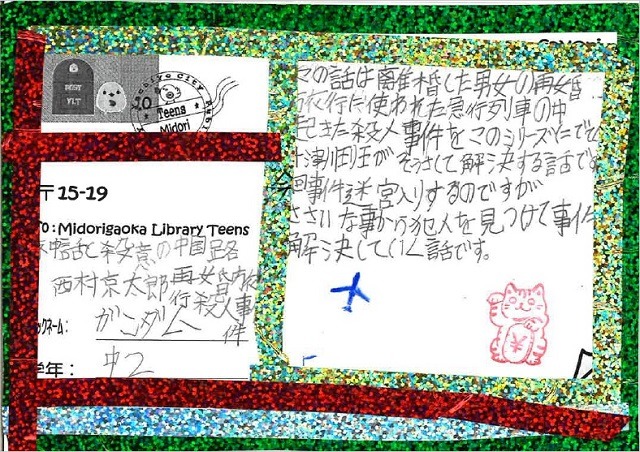 POST
YLT
City
Teens
Midori
〒15-19
TO: Midorigaoka Library Teens
電話と殺意の中国路
西村京太郎 再婚旅
行殺人事
件
ックネーム: ガンダム
学年: 中2
この話は離婚した男女の再婚
旅行に使われた急行列車の中
起きた殺人事件をこのシリーズにでて
そうさして解決する話で
回事件迷宮入りするのですが
ささいな事から犯人を見つけて事件
解決していく話です。